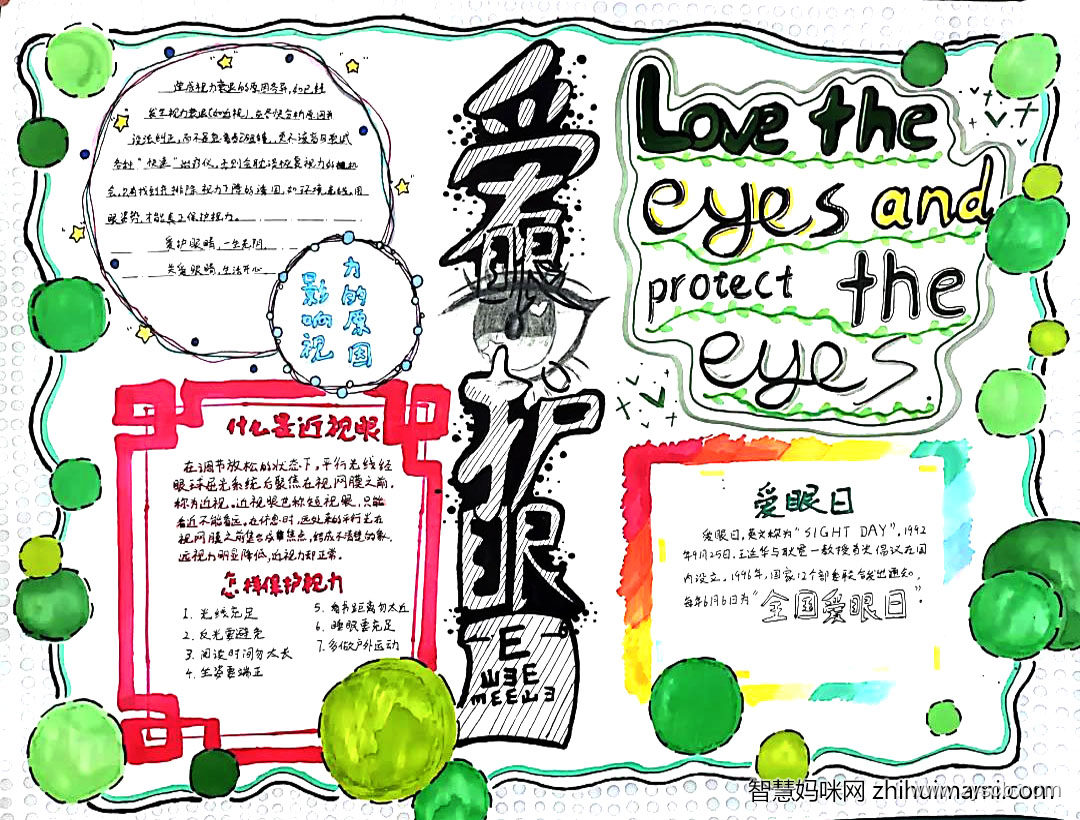 造成视力衰退的原因各异,如已经
发生视力衰退(如近视),应尽快分析原因并
设法纠正,而不是盲着
"快速"治疗仪,否则会耽误恢复视力的机
会,只有找到并排除视力下降的诱因,如环境光线,用
眼姿势,才能真正保护视力。
爱护眼睛,一生光明。
关爱眼睛,生活开心
影响视
力的原因
什么是近视眼
在调节放松的状态下,平行光线经
眼球屈光系统后聚焦在视网膜之前,
称为近视。近视眼也称短视眼,只能
看近不能看远。在休息时,远处来的平行光在
视网膜之前集合成焦点,
远视力明显降低,近视力却正常。
怎样保护视力
1. 光线充足
2. 反光要避免
3. 阅读时间勿太长
4. 坐姿要端正
5. 看书距离勿太近
6. 睡眠要充足
7. 多做户外运动
爱眼护眼
E
E
Love the
eyes and
protect the
eyes
爱眼日
爱眼日,英文称为"SIGHT DAY",1992
年9月25日,王延华与耿贯一教授首次倡议在国
内设立。1996年,国家12个部委联合发出通知,
每年6月6日为"全国爱眼日"
智慧妈咪网 zhihuimami.com